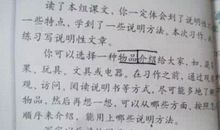 读了本组课文,你一定体会到了说明性
一些特点,学到了一些说明方法。本次习作,
练习写说明性文章。
你可以选择一种物品介绍给大家,如,
果、玩具、文具或电器。在习作之前,通过观
观、访问、阅读说明书等方式,尽可能多地了
物品,然后再想一想,可以从哪些方面,按照
顺序来介绍,能用上哪些说明方法。